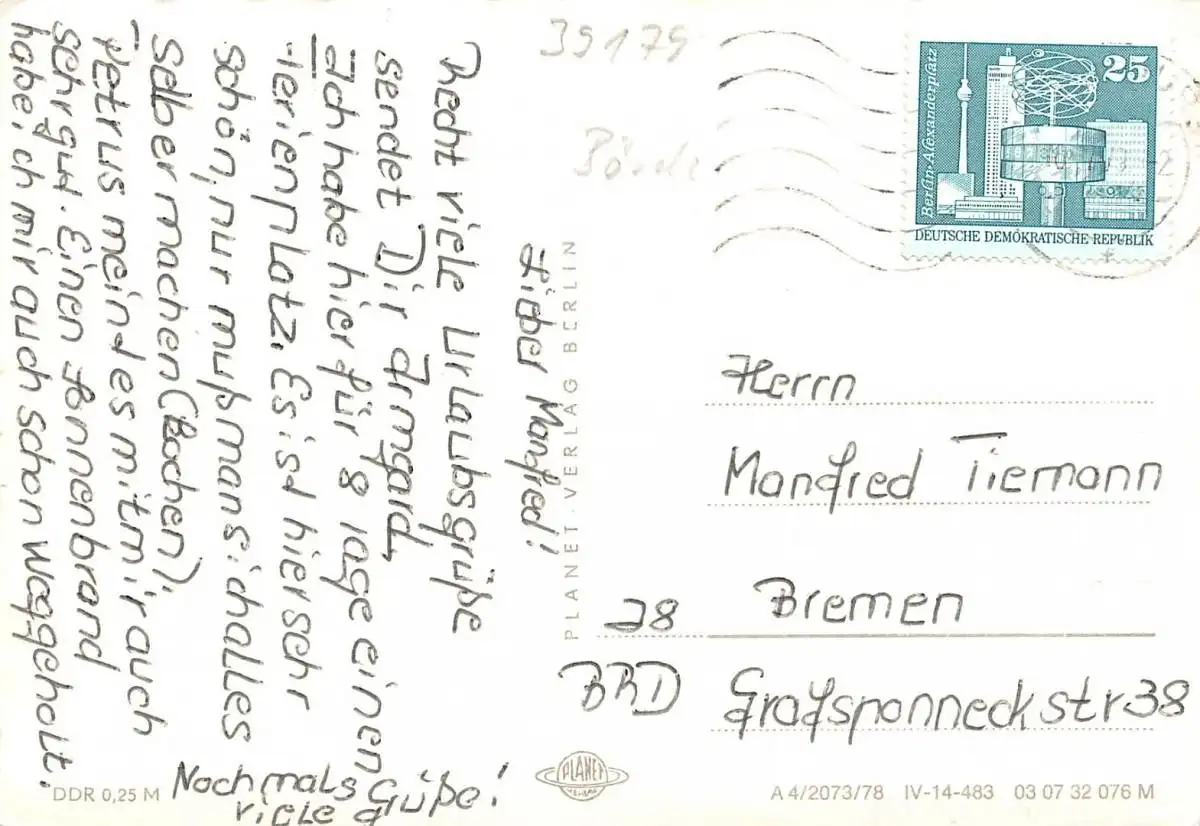 Lieber Manfred!
Recht viele Urlaubsgrüße
sendet Dir Irmgard,
Ich habe hier für 8 Tage einen
Ferienplatz. Es isd hier sehr
schön, nur muß man sich alles
selber machen (Kochen).
Petrus meind es mit mir auch
sehr gut. Einen Sonnenbrand
habe ich mir auch schon weggeholt.
Nochmals
viele Grüße!
39179
Börde
25
Berlin-Alexanderplatz
DEUTSCHE DEMOKRATISCHE REPUBLIK
PLANET-VERLAG BERLIN
Herrn
Manfred Tiemann
28 Bremen
BRD Grafsponneckstr 38
PLANET
VERLAG
DDR 0,25 M
A 4/2073/78 IV-14-483 03 07 32 076 M